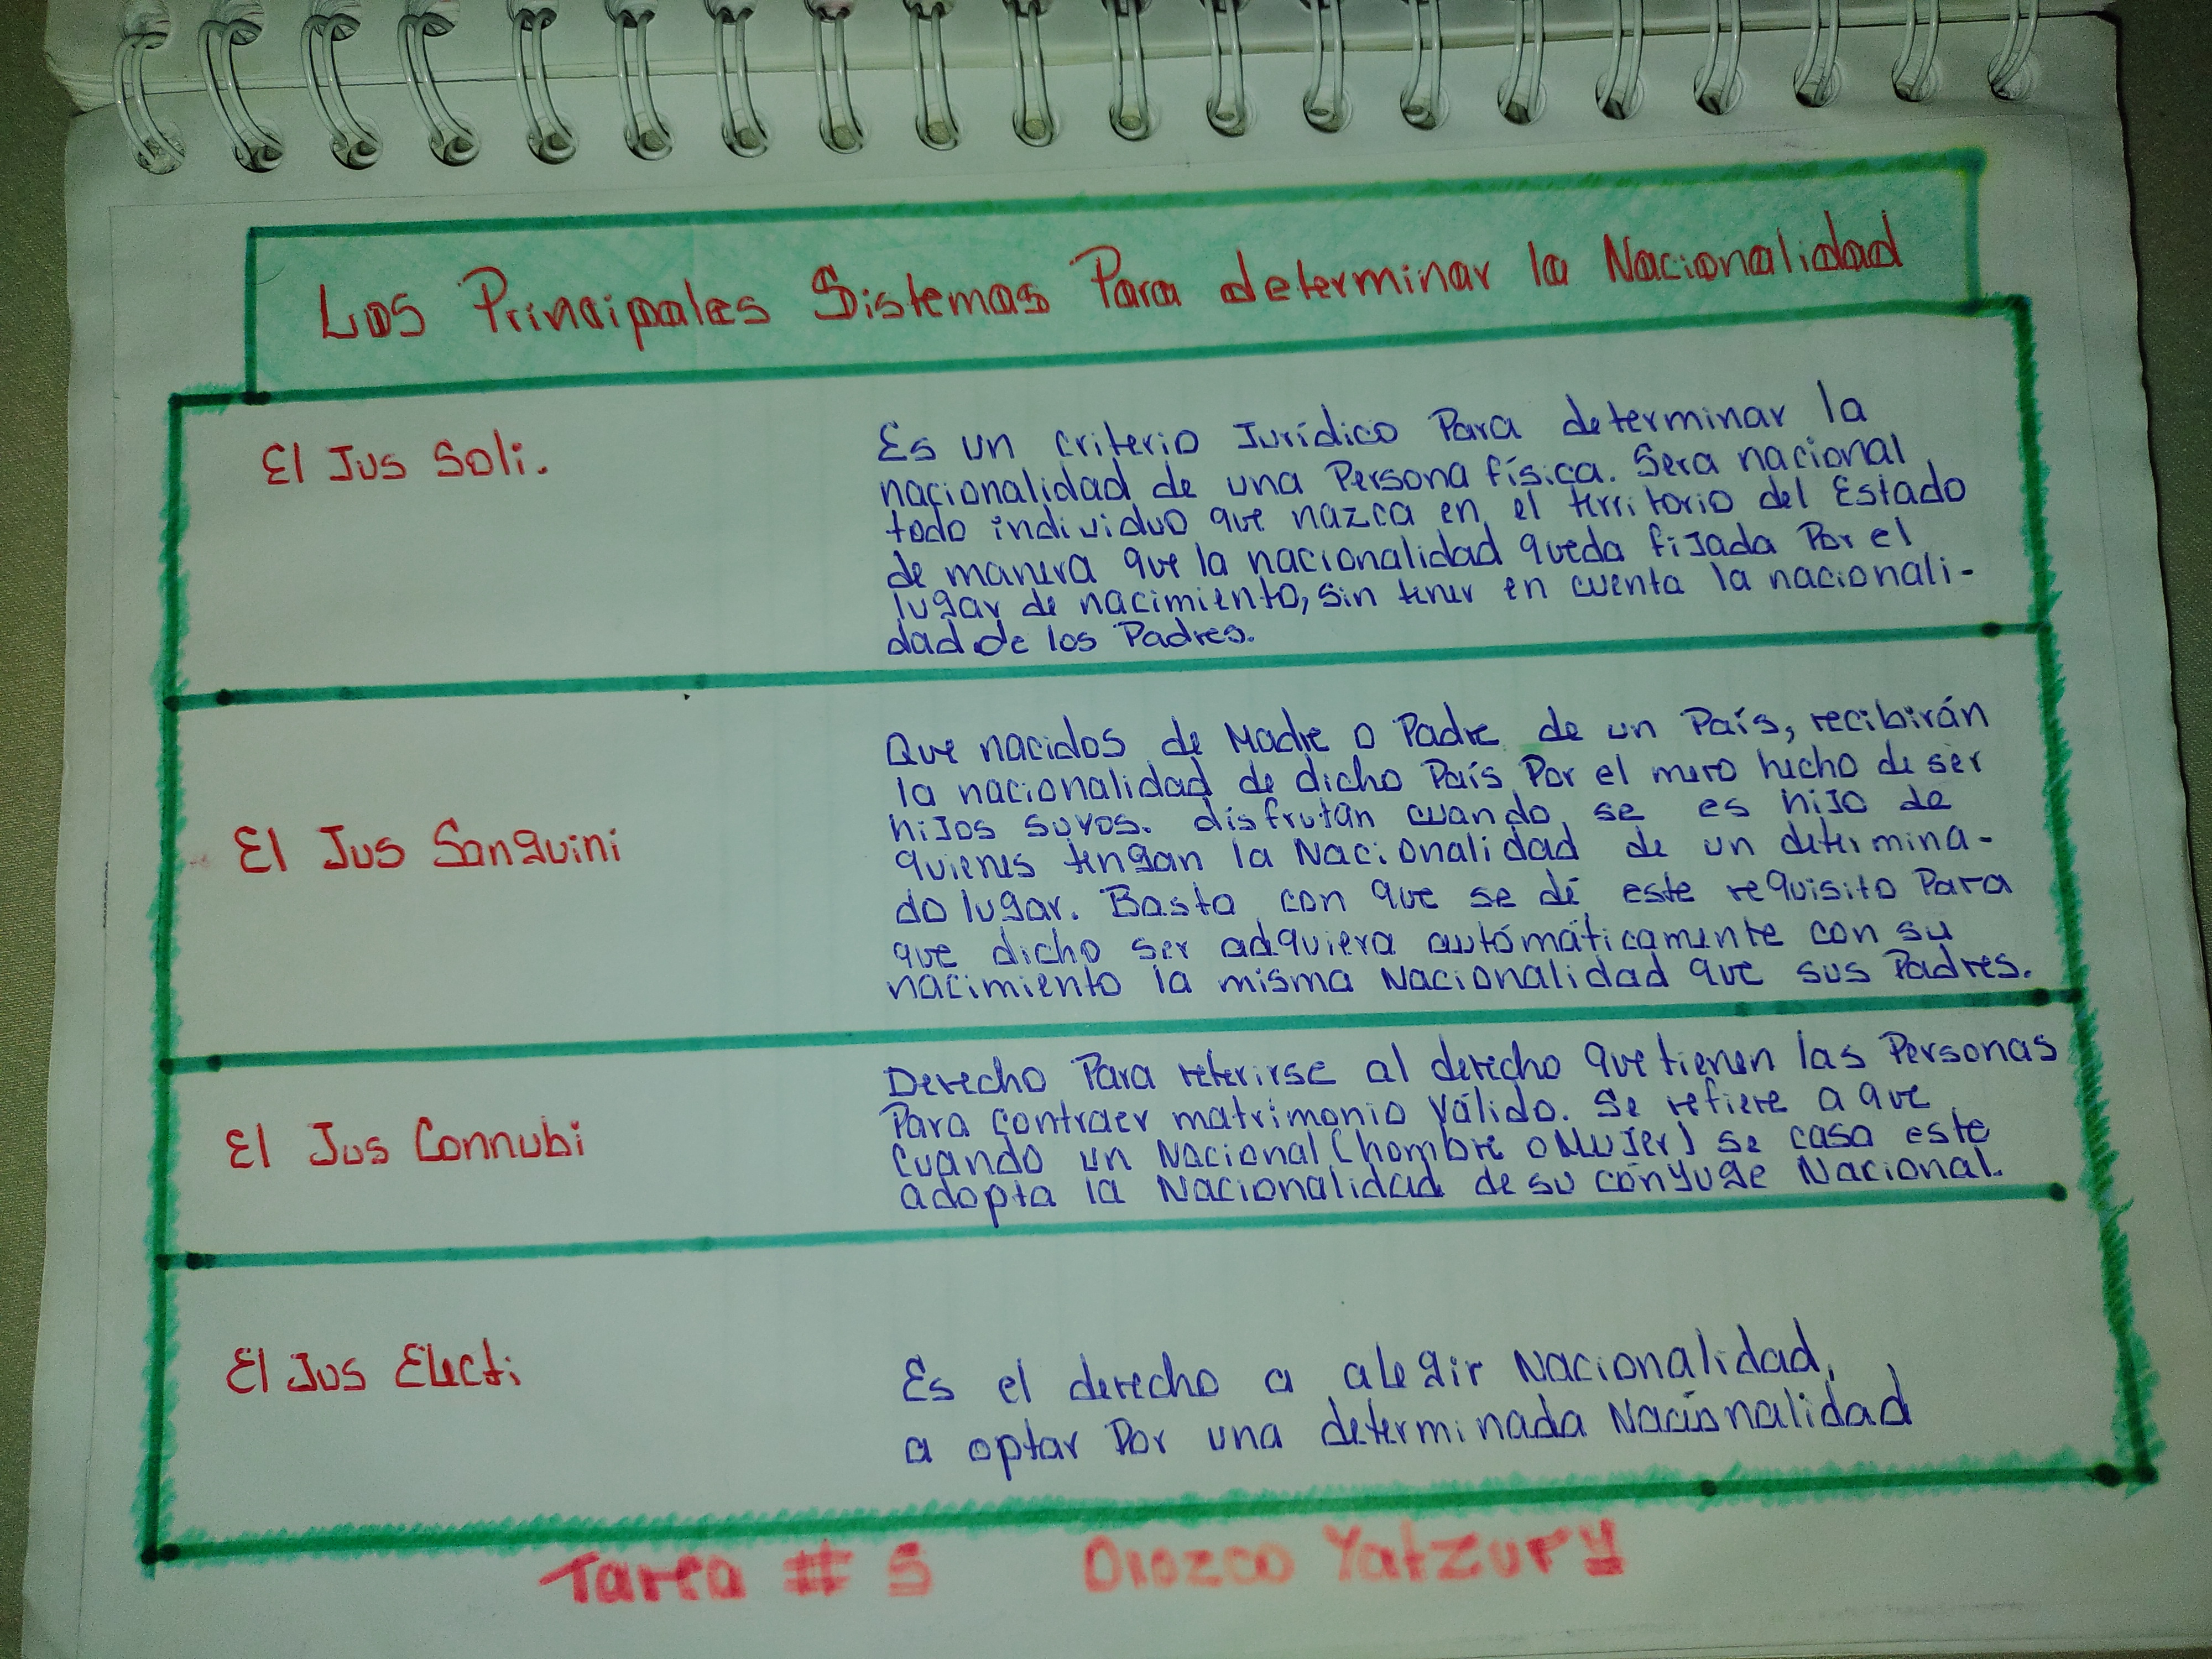 Los Principales Sistemas Para determinar la Nacionalidad
El Jus Soli.
Es un criterio Jurídico Para determinar la
nacionalidad de una Persona física. Sera nacional
todo individuo que nazca en el territorio del Estado
de manera que la nacionalidad queda fijada Por el
lugar de nacimiento, sin tener en cuenta la nacionali-
dad de los Padres.
El Jus Sanguini
Que nacidos de Madre o Padre de un País, recibirán
la nacionalidad de dicho País Por el mero hecho de ser
hijos suyos. disfrutan cuando se es hijo de
quienes tengan la Nacionalidad de un determina-
do lugar. Basta con que se dé este requisito Para
que dicho ser adquiera autómáticamente con su
nacimiento la misma Nacionalidad que sus Padres.
El Jus Connubi
Derecho Para referirse al derecho que tienen las Personas
Para contraer matrimonio válido. Se refiere a que
cuando un Nacional (hombre o Mujer) se casa este
adopta la Nacionalidad de su cónyuge Nacional.
El Jus Electi
Es el derecho a alegir Nacionalidad,
a optar Por una determinada Nacionalidad
Tarea # 5 Orozco Yatzury